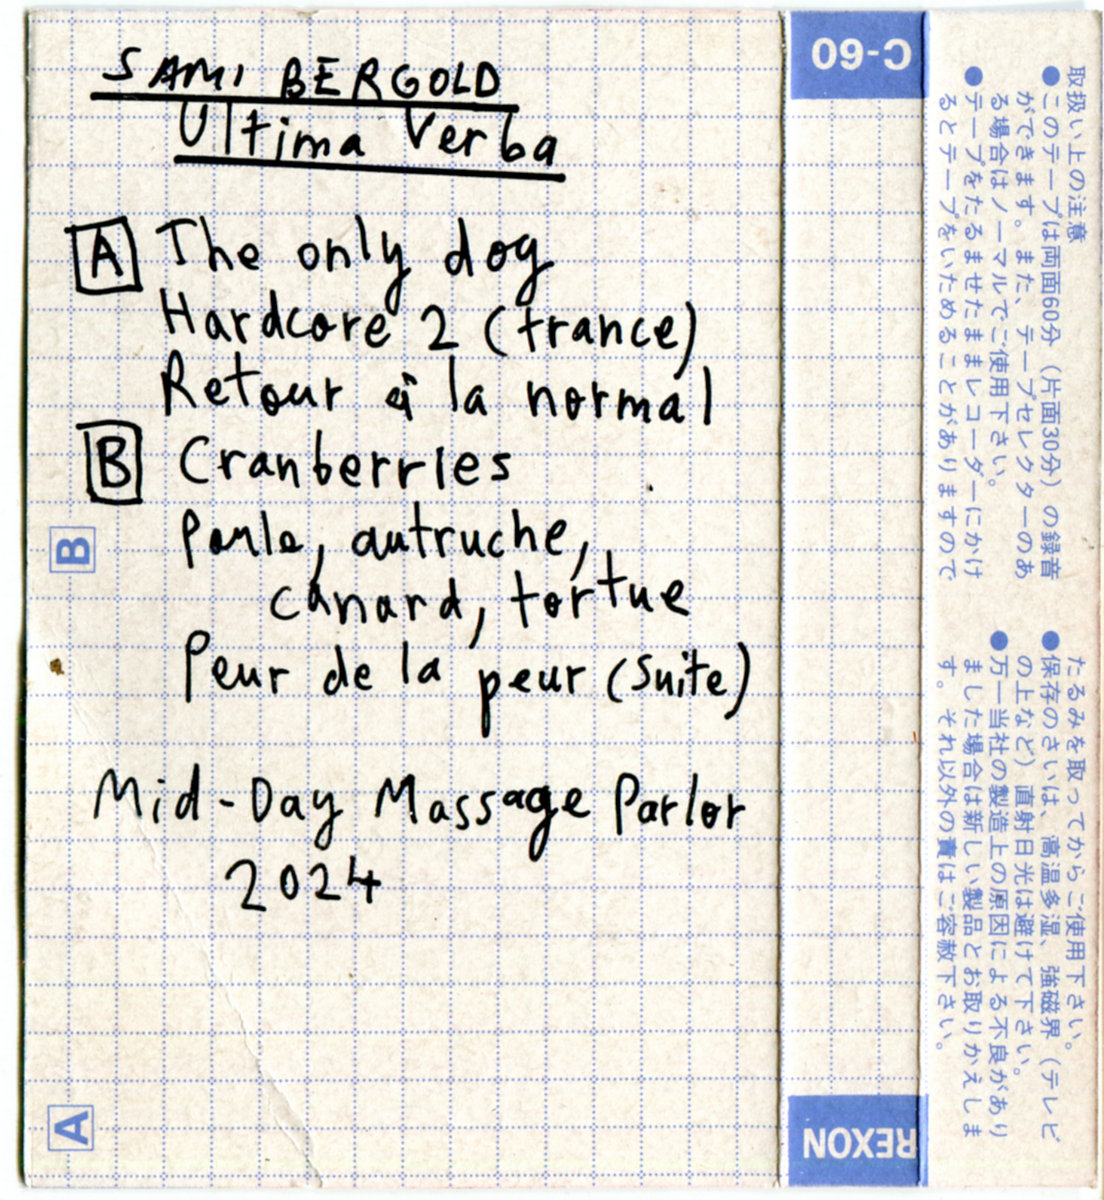 SAMI BERGOLD
Ultima Verba
A The only dog
Hardcore 2 (trance)
Retour à la normal
B Cranberries
Perle, autruche,
canard, tortue
Peur de la peur (suite)
Mid-Day Massage Parlor
2024
B
A
C-60
REXON
取扱い上の注意
●このテープは両面60分（片面30分）の録音
ができます。また、テープセレクターのあ
る場合はノーマルでご使用下さい。
●テープをたるませたままレコーダーにかけ
るとテープをいためることがありますので
たるみを取ってからご使用下さい。
●保存のさいは、高温多湿、強磁界（テレビ
の上など）直射日光は避けて下さい。
●万一当社の製造上の原因による不良があり
ました場合は新しい製品とお取りかえしま
す。それ以外の責はご容赦下さい。